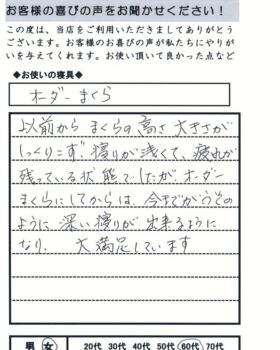 お客様の喜びの声をお聞かせください！
この度は、当店をご利用いただきましてありがとう
ございます。お客様のお喜びの声が私たちにやりが
いを与えてくれます。お使い頂いて良かった点など
◆お使いの寝具
オーダーまくら
以前から まくらの高さ 大きさが
しっくりこず、寝りが浅くて、疲れが
残っている状態でしたが オーダー
まくらにしてからは、今までがうその
ように 深い寝りが 出来るように
なり、 大満足しています
男 女 20代 30代 40代 50代 60代 70代